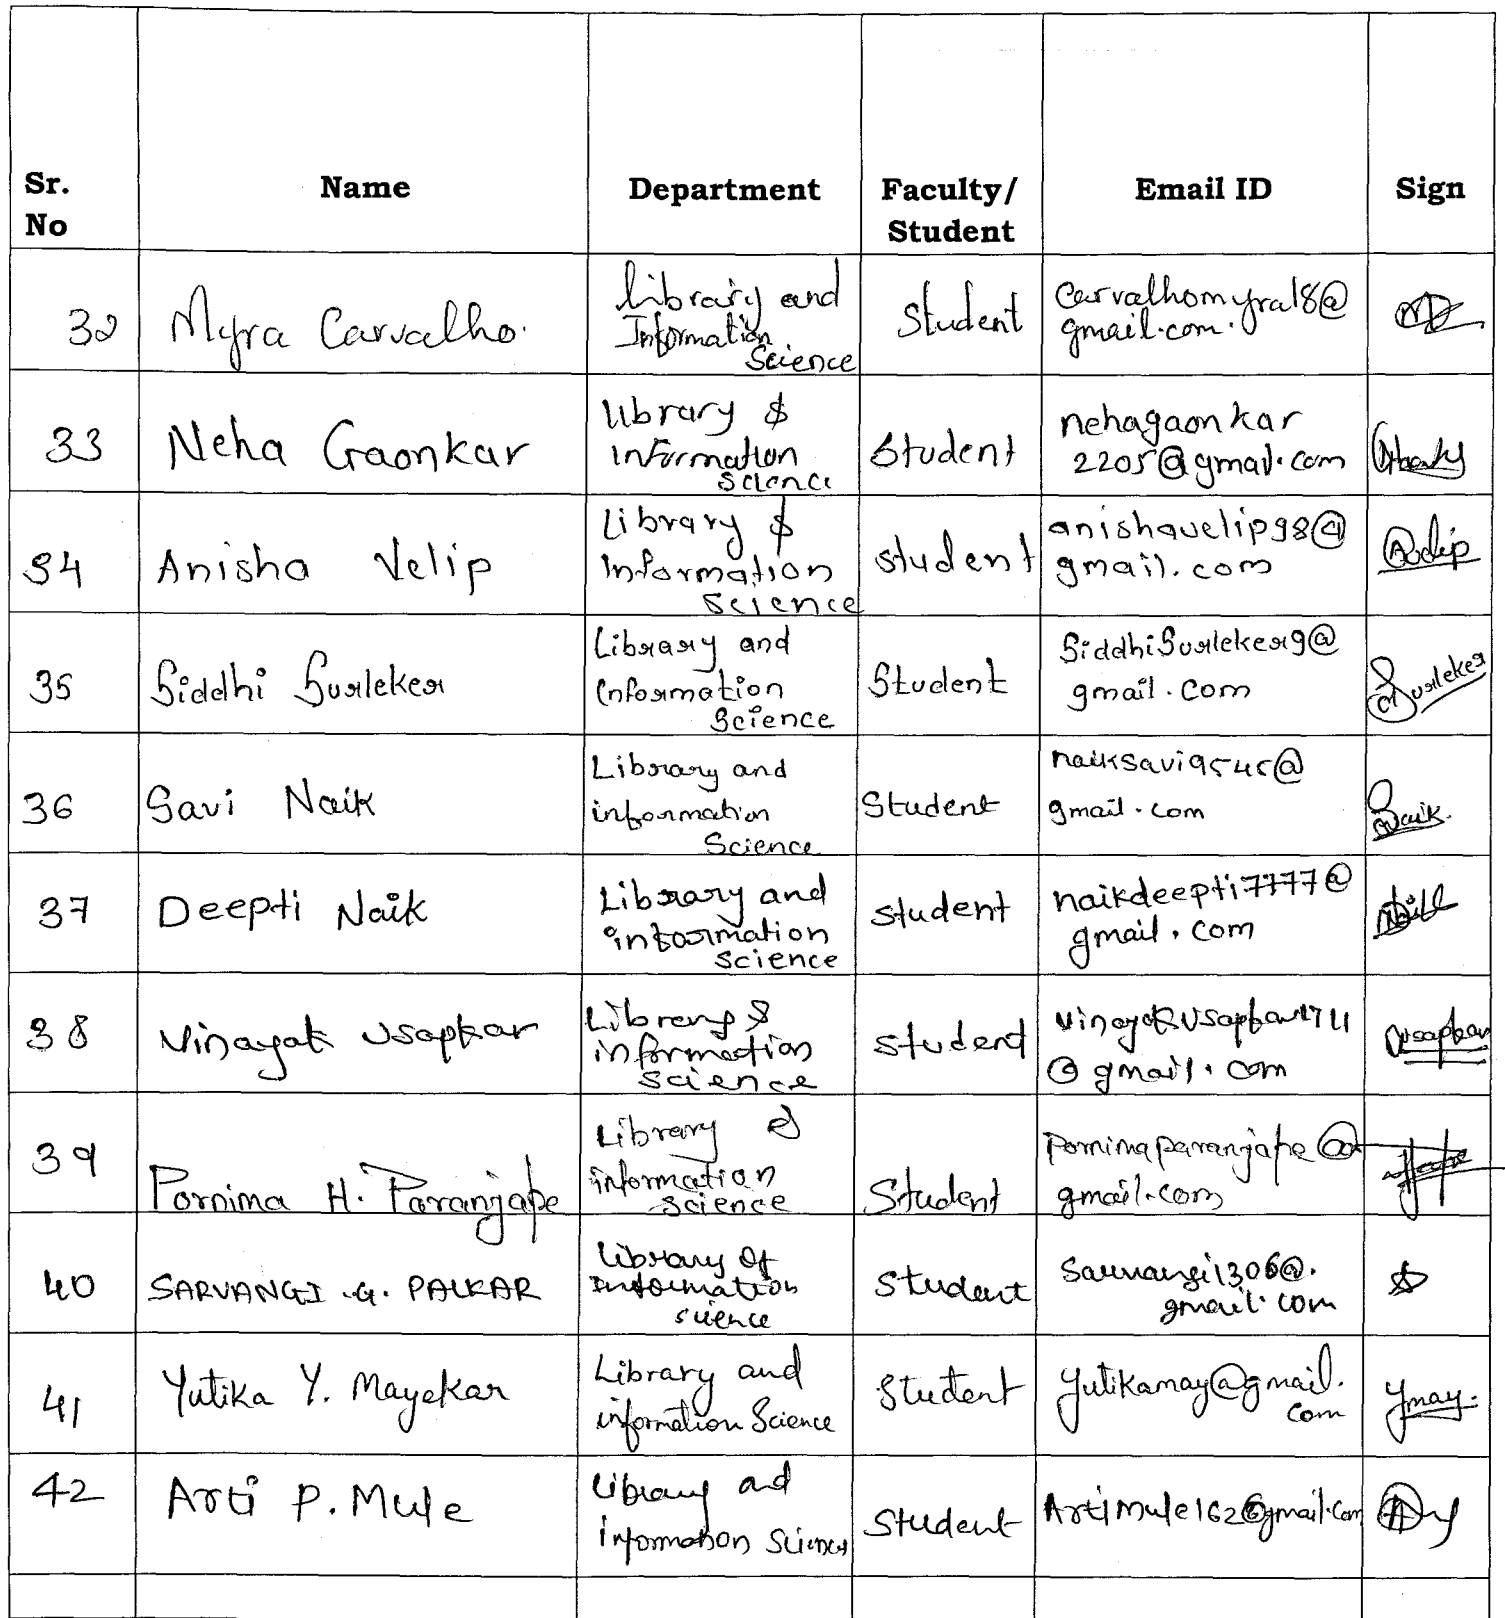 Sr. No Name Department Faculty/ Student Email ID Sign
32 Myra Carvalho. Library and Information Science Student carvalhomyra18@gmail.com.
33 Neha Gaonkar Library & Information Science Student nehagaonkar2205@gmail.com
34 Anisha Velip Library & Information Science student anishavelip98@gmail.com Avelip
35 Siddhi Surleker Library and Information Science Student SiddhiSurleker9@gmail.com Surleker
36 Savi Naik Library and information Science Student naiksavi9545@gmail.com Naik
37 Deepti Naik Library and information science student naikdeepti7777@gmail.com
38 Vinayak Usapkar Library & information science student vinayakusapkar1711@gmail.com Usapkar
39 Pornima H. Paranjape Library & information science Student pornimaparanjape@gmail.com
40 SARVANGI .G. PALKAR library of Information science Student sarvangi1306@.gmail.com
41 Yutika Y. Mayekar Library and information Science Student yutikamay@gmail.com Ymay.
42 Arti P. Mule Library and information Science Student Artimule162@gmail.com